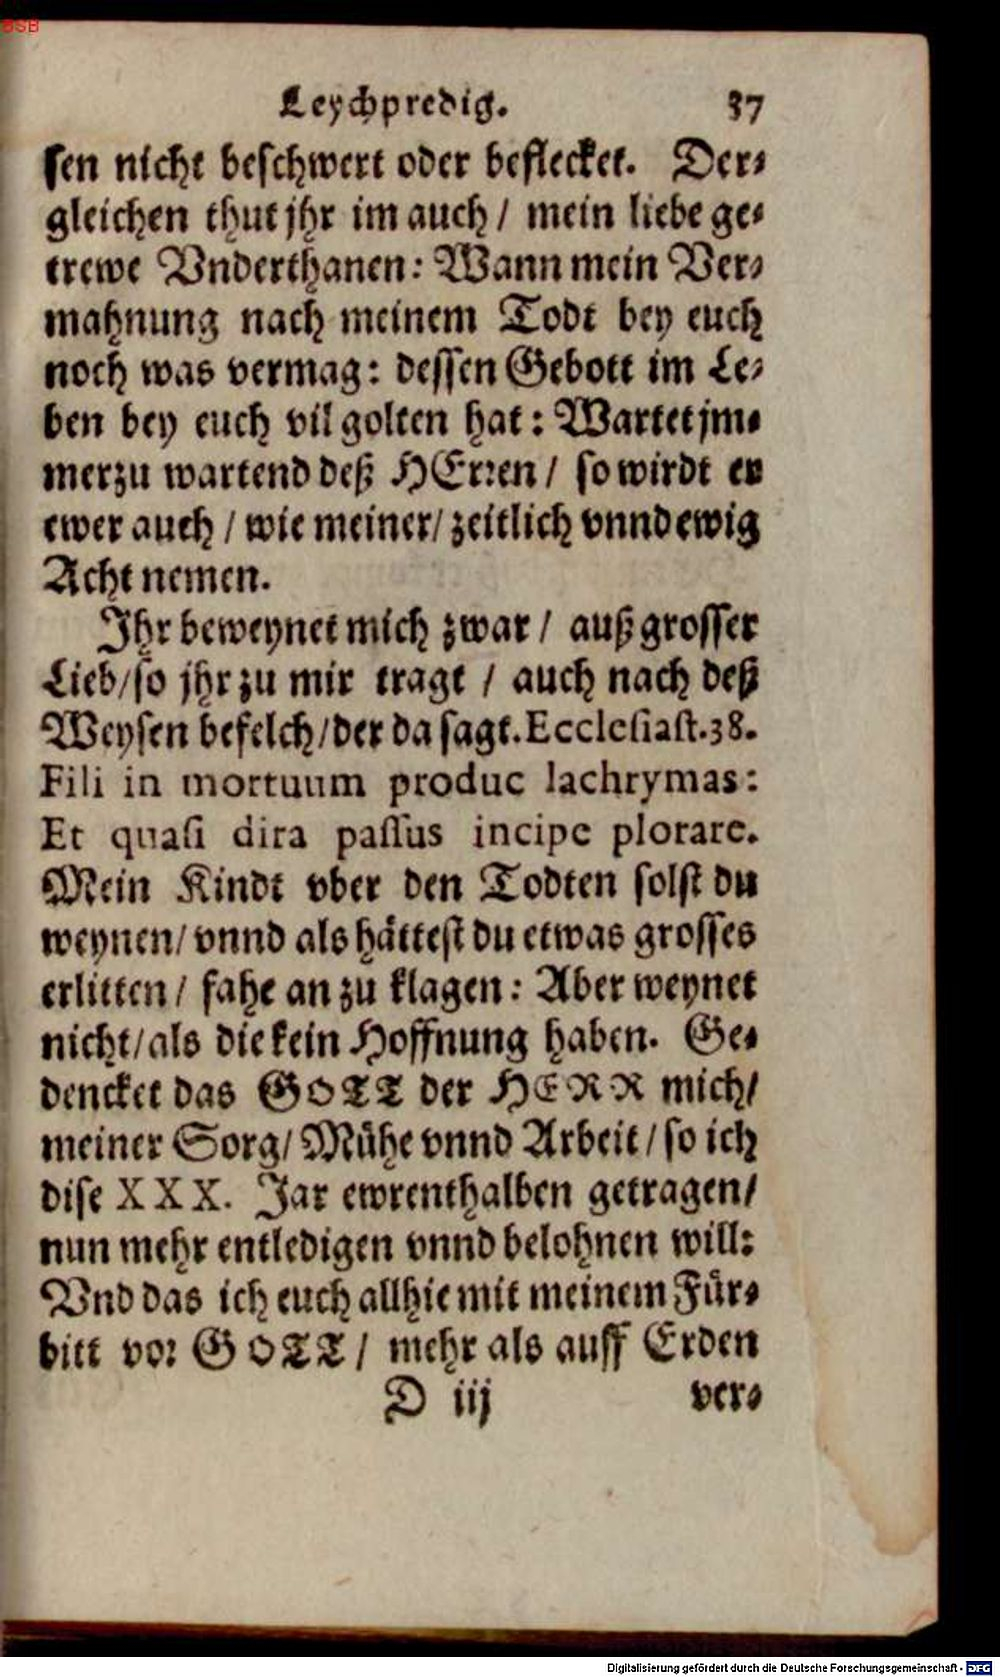 BSB
Leychpredig. 37
sen nicht beschwert oder beflecket. Der-
gleichen thut jhr im auch / mein liebe ge-
trewe Vnderthanen: Wann mein Ver-
mahnung nach meinem Todt bey euch
noch was vermag: dessen Gebott im Le-
ben bey euch vil golten hat: Wartet jm-
merzu wartend deß HErren / so wirdt er
ewer auch / wie meiner / zeitlich vnnd ewig
Acht nemen.
Jhr beweynet mich zwar / auß grosser
Lieb / so jhr zu mir tragt / auch nach deß
Weysen befelch / der da sagt. Ecclesiast. 38.
Fili in mortuum produc lachrymas:
Et quasi dira passus incipe plorare.
Mein Kindt vber den Todten solst du
weynen / vnnd als hättest du etwas grosses
erlitten / fahe an zu klagen: Aber weynet
nicht / als die kein Hoffnung haben. Ge-
dencket das GOTT der HERR mich /
meiner Sorg / Mühe vnnd Arbeit / so ich
dise XXX. Jar ewrenthalben getragen /
nun mehr entledigen vnnd belohnen will:
Vnd das ich euch allhie mit meinem Für-
bitt vor GOTT / mehr als auff Erden
D iij ver-
Digitalisierung gefördert durch die Deutsche Forschungsgemeinschaft - DFG